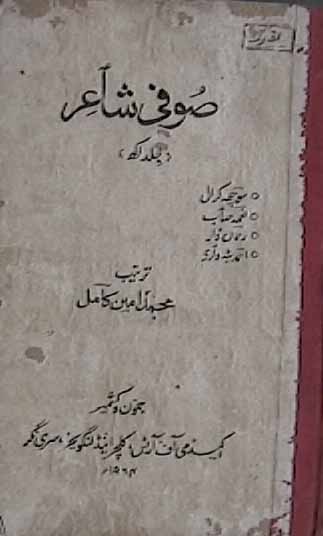 صوفی شٲعِر
(جلد اکھ)
○ سوچھ کرال
○ نعمہ صٲب
○ رحمان ڈار
○ احمد بٹہ وٲری
ترتیب
محمد امین کامل
جموں و کشمیر
اکیڈمی آف آرٹس، کلچر اینڈ لنگویجز، سری نگر
۱۹۶۴ء